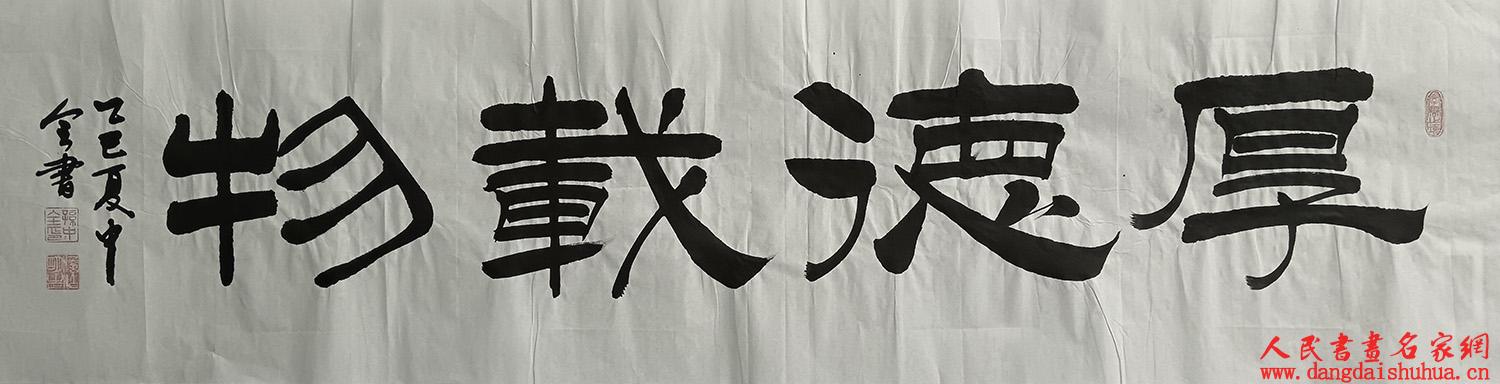 厚德載物
乙巳夏中
全書
孫中
全印
人民書畫名家網
www.dangdaishuhua.cn